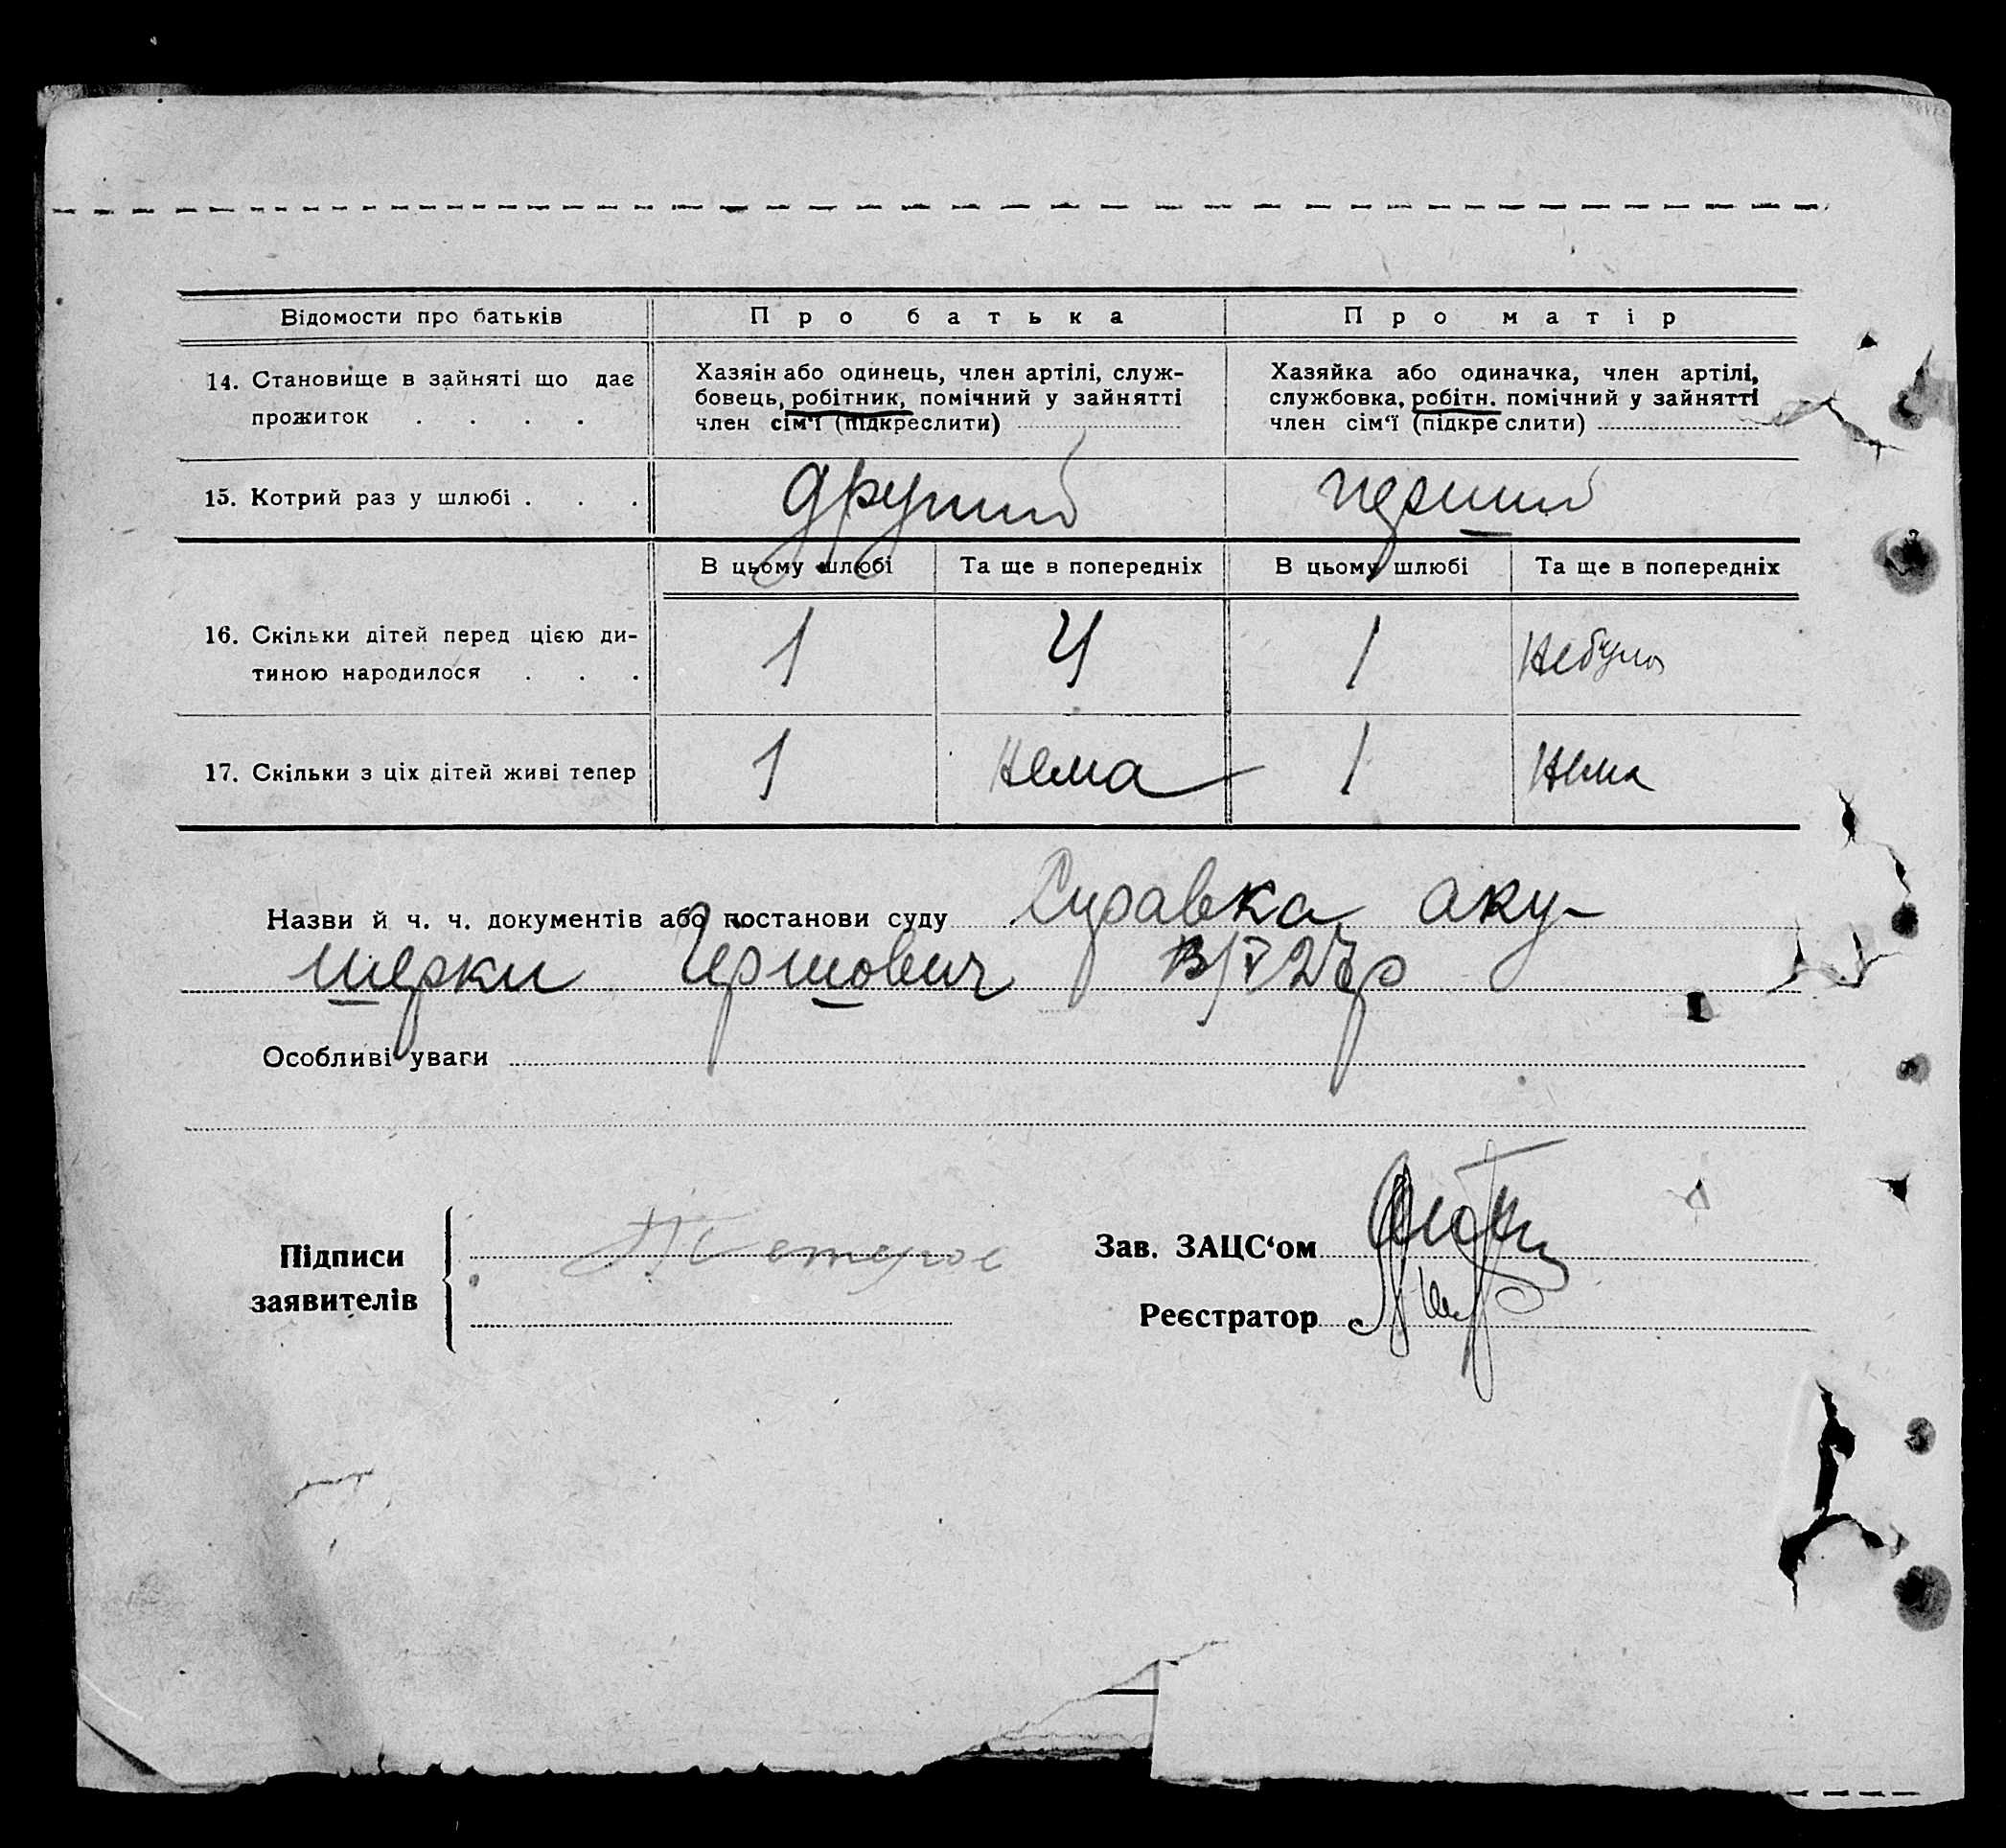 Відомости про батьків Про батька Про матір
14. Становище в зайняті що дає
прожиток . . . .
Хазяін або одинець, член артілі, служ-
бовець, робітник, помічний у зайнятті
член сім'ї (підкреслити)
Хазяйка або одиначка, член артілі,
службовка, робітн. помічний у зайнятті
член сім'ї (підкреслити)
15. Котрий раз у шлюбі . . . другий перший
В цьому шлюбі Та ще в попередніх В цьому шлюбі Та ще в попередніх
16. Скільки дітей перед цією ди-
тиною народилося . . .
1 4 1 Небуло
17. Скільки з ціх дітей живі тепер 1 Нема 1 Нема
Назви й ч. ч. документів або постанови суду Справка аку-
шерки Гершович
Особливі уваги
Підписи
заявителів
Зав. ЗАЦС'ом
Реєстратор